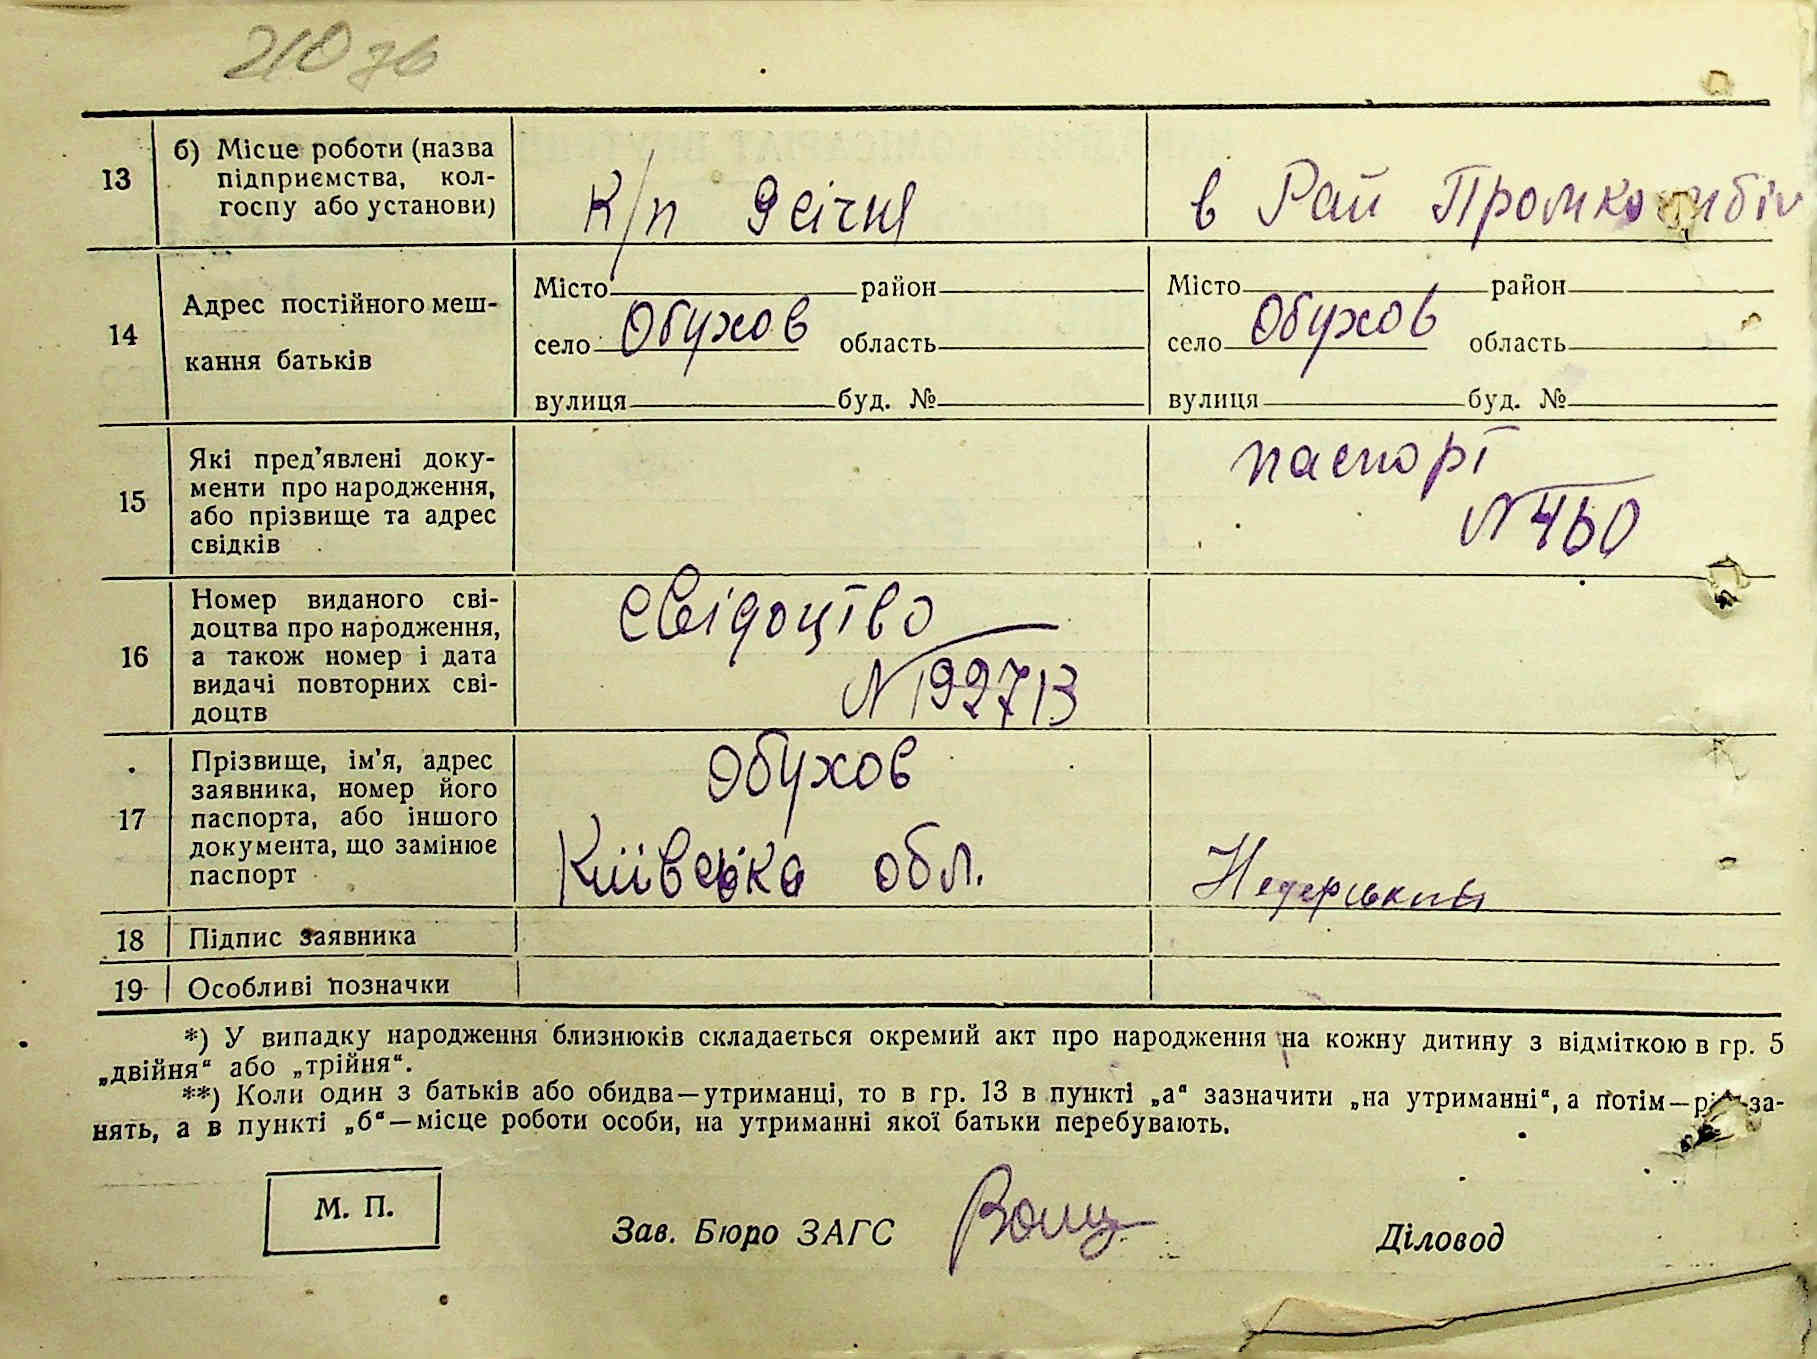 210 зв
13 б) Місце роботи (назва підприємства, колгоспу або установи) К/п 9 січня в Рай Промкомбін
14 Адрес постійного мешкання батьків
Місто район Місто район
село Обухов область село Обухов область
вулиця буд. № вулиця буд. №
15 Які пред'явлені документи про народження, або прізвище та адрес свідків
паспорт
N 460
16 Номер виданого свідоцтва про народження, а також номер і дата видачі повторних свідоцтв
свідоцтво
N 192713
17 Прізвище, ім'я, адрес заявника, номер його паспорта, або іншого документа, що замінює паспорт
Обухов
Київська обл.
18 Підпис заявника
19 Особливі позначки
*) У випадку народження близнюків складається окремий акт про народження на кожну дитину з відміткою в гр. 5
„двійня“ або „трійня“.
**) Коли один з батьків або обидва—утриманці, то в гр. 13 в пункті „а“ зазначити „на утриманні“, а потім—рід за-
нять, а в пункті „б“—місце роботи особи, на утриманні якої батьки перебувають.
М. П.
Зав. Бюро ЗАГС Діловод